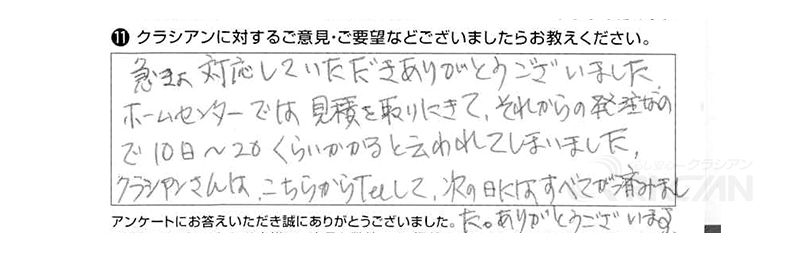 ⑪ クラシアンに対するご意見・ご要望などございましたらお教えください。
急きょ対応していただきありがとうございました。
ホームセンターでは見積を取りにきて、それからの発注なの
で10日〜20くらいかかると云われてしまいました。
クラシアンさんは、こちらからTelして、次の日にはすべてが済みまし
た。ありがとうございます
アンケートにお答えいただき誠にありがとうございました。
クラシアン